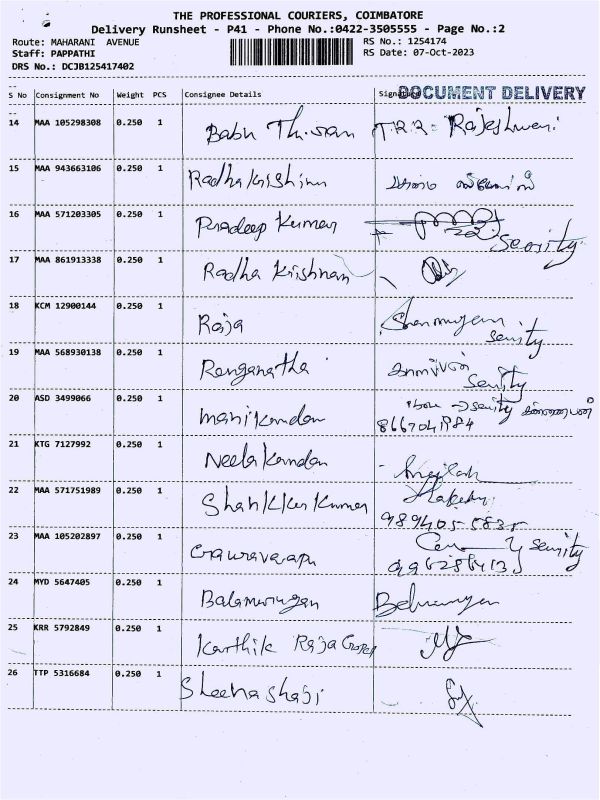 THE PROFESSIONAL COURIERS, COIMBATORE
Delivery Runsheet - P41 - Phone No.:0422-3505555 - Page No.:2
Route: MAHARANI AVENUE
RS No.: 1254174
Staff: PAPPATHI
RS Date: 07-Oct-2023
DRS No.: DCJB125417402
DOCUMENT DELIVERY
S No Consignment No Weight PCS Consignee Details Signature
14 MAA 105298308 0.250 1 Babu T.R.R- Rajeshwari
15 MAA 943663106 0.250 1 Radha krishnn
16 MAA 571203305 0.250 1 Pradeep Kumar Seority
17 MAA 861913338 0.250 1 Radha Krishnan
18 KCM 12900144 0.250 1 Raja Shanmugam
senity
19 MAA 568930138 0.250 1 Renganatha
senity
20 ASD 3499066 0.250 1 manikandan senity
8667041984
21 KTG 7127992 0.250 1 Neelakandan
22 MAA 571751989 0.250 1 Shankker Kumar
989405-5835
23 MAA 105202897 0.250 1 Gauravarapu senity
24 MYD 5647405 0.250 1 Balamurugan
25 KRR 5792849 0.250 1 Karthik Raja
26 TTP 5316684 0.250 1 Sheeha shaji